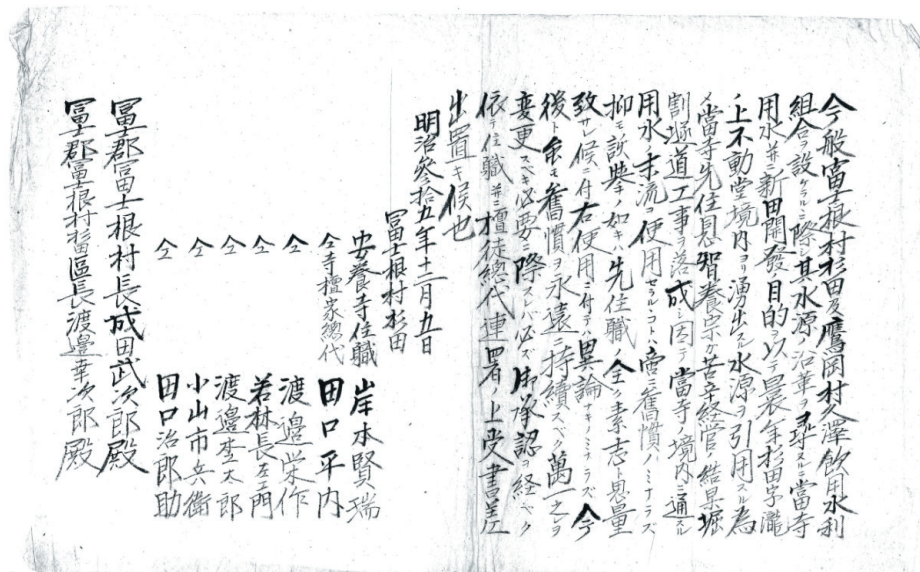 今般富士根村杉田及鷹岡村久澤飲用水利
組合ヲ設ケラルニ際其水源ノ沿革ヲ尋スルニ當寺
用水并新田開發目的ヲ以テ曩年杉田字瀧
ノ上不動堂境内ヨリ湧出スル水源ヲ引用スル為
メ當寺先住恩智養宗カ苦辛経営ノ結果堀
割隧道工事ヲ落成シ因テ當寺境内ニ通スル
用水ノ末流ヲ使用セラルコトハ啻ニ舊慣ノミナラズ
抑モ該典ノ如キハ先住職ノ全ク素志ト思量
致サレ候ニ付右使用ニ付テハ異論ナキノミナラズ今
後ト雖モ舊慣ヲ永遠ニ持續スベク萬一之レヲ
変更スベキ必要ニ際スレバ必ズ御承認ヲ経ベク
依テ住職并ニ檀徒總代連署ノ上受書差
出置キ候也
明治參拾五年十二月五日
冨士根村杉田
安養寺住職 岸本賢瑞
仝寺檀家總代 田口平内
仝 渡邉栄作
仝 若林長左エ門
仝 渡邉杢太郎
仝 小山市兵衛
仝 田口治郎助
冨士郡冨士根村長成田武次郎殿
冨士郡冨士根村杉田區長渡邉幸次郎殿